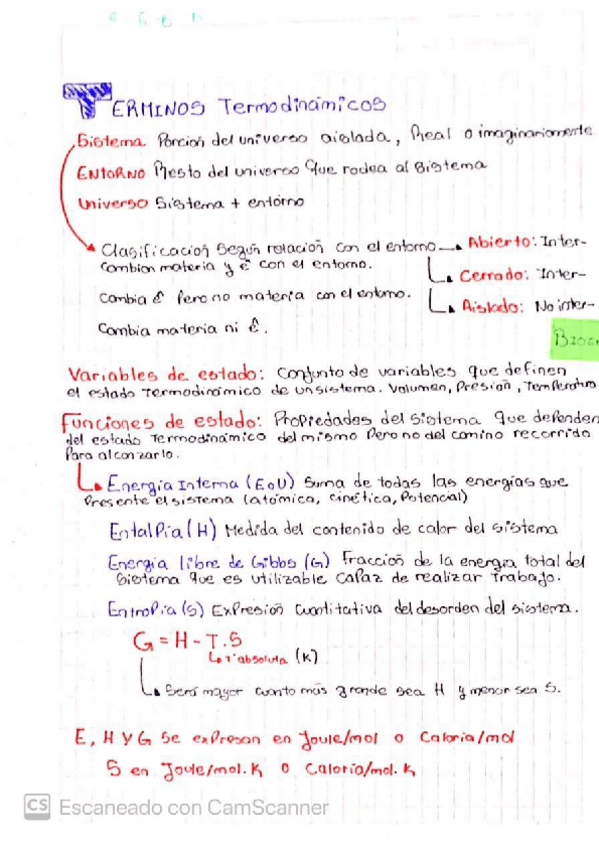 TERMINOS Termodinámicos
Sistema Porción del universo aislada, Real o imaginariamente
ENTORNO Resto del universo que rodea al sistema
Universo Sistema + entorno
Clasificación según relación con el entorno → Abierto: Inter-
Cambian materia y é con el entorno. → Cerrado: Inter-
Cambia É pero no materia con el entorno. → Aislado: No inter-
Cambia materia ni É.
Variables de estado: Conjunto de variables que definen
el estado termodinámico de un sistema. Volumen, Presión, Temperatura
Funciones de estado: Propiedades del sistema que dependen
del estado termodinámico del mismo pero no del camino recorrido
Para alcanzarlo.
Energía Interna (E o U) Suma de todas las energías que
Presente el sistema (atómica, cinética, Potencial)
Entalpia (H) Medida del contenido de calor del sistema
Energía libre de Gibbs (G) Fracción de la energía total del
sistema que es utilizable capaz de realizar trabajo.
Entropía (S) Expresión cuantitativa del desorden del sistema.
G = H - T.S
T° absoluta (K)
Será mayor cuanto más grande sea H y menor sea S.
E, H y G se expresan en Joule/mol o Caloria/mol
S en Joule/mol.K o Caloria/mol.K
CS Escaneado con CamScanner